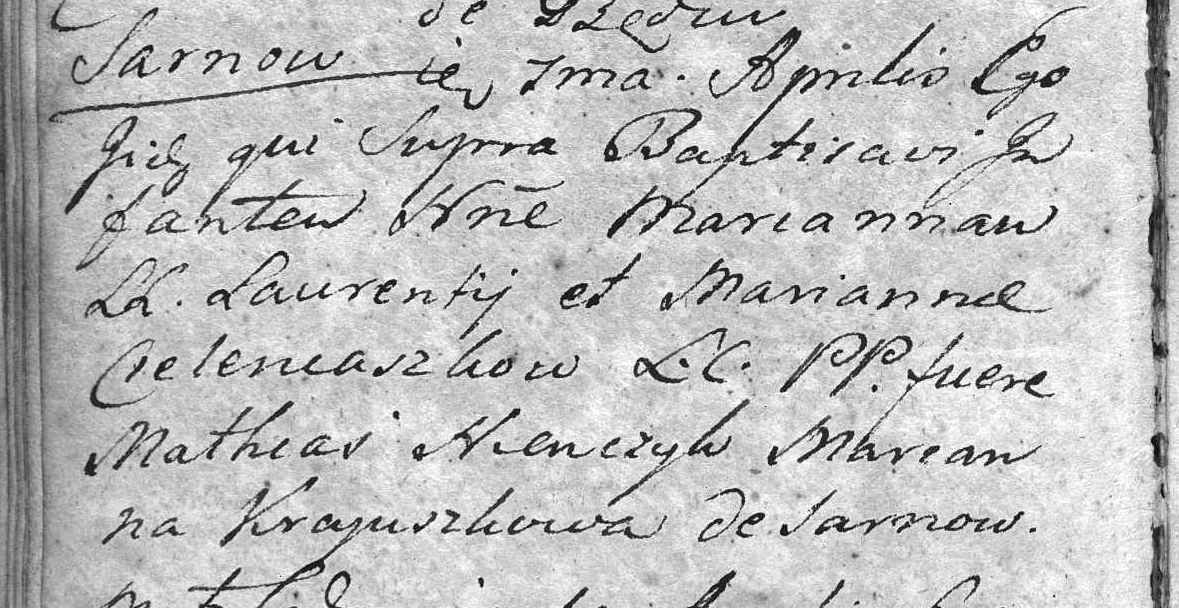 de
Sarnow die 1ma. Aprilis Ego
Jidẽ qui Supra Baptisavi In
fantem Nñe Mariannam
LL. Laurentij et Mariannæ
Cieleniaszkow L.C. PP. fuere
Mathias Niemczyk Marian
na Krayuszkowa de Sarnow.